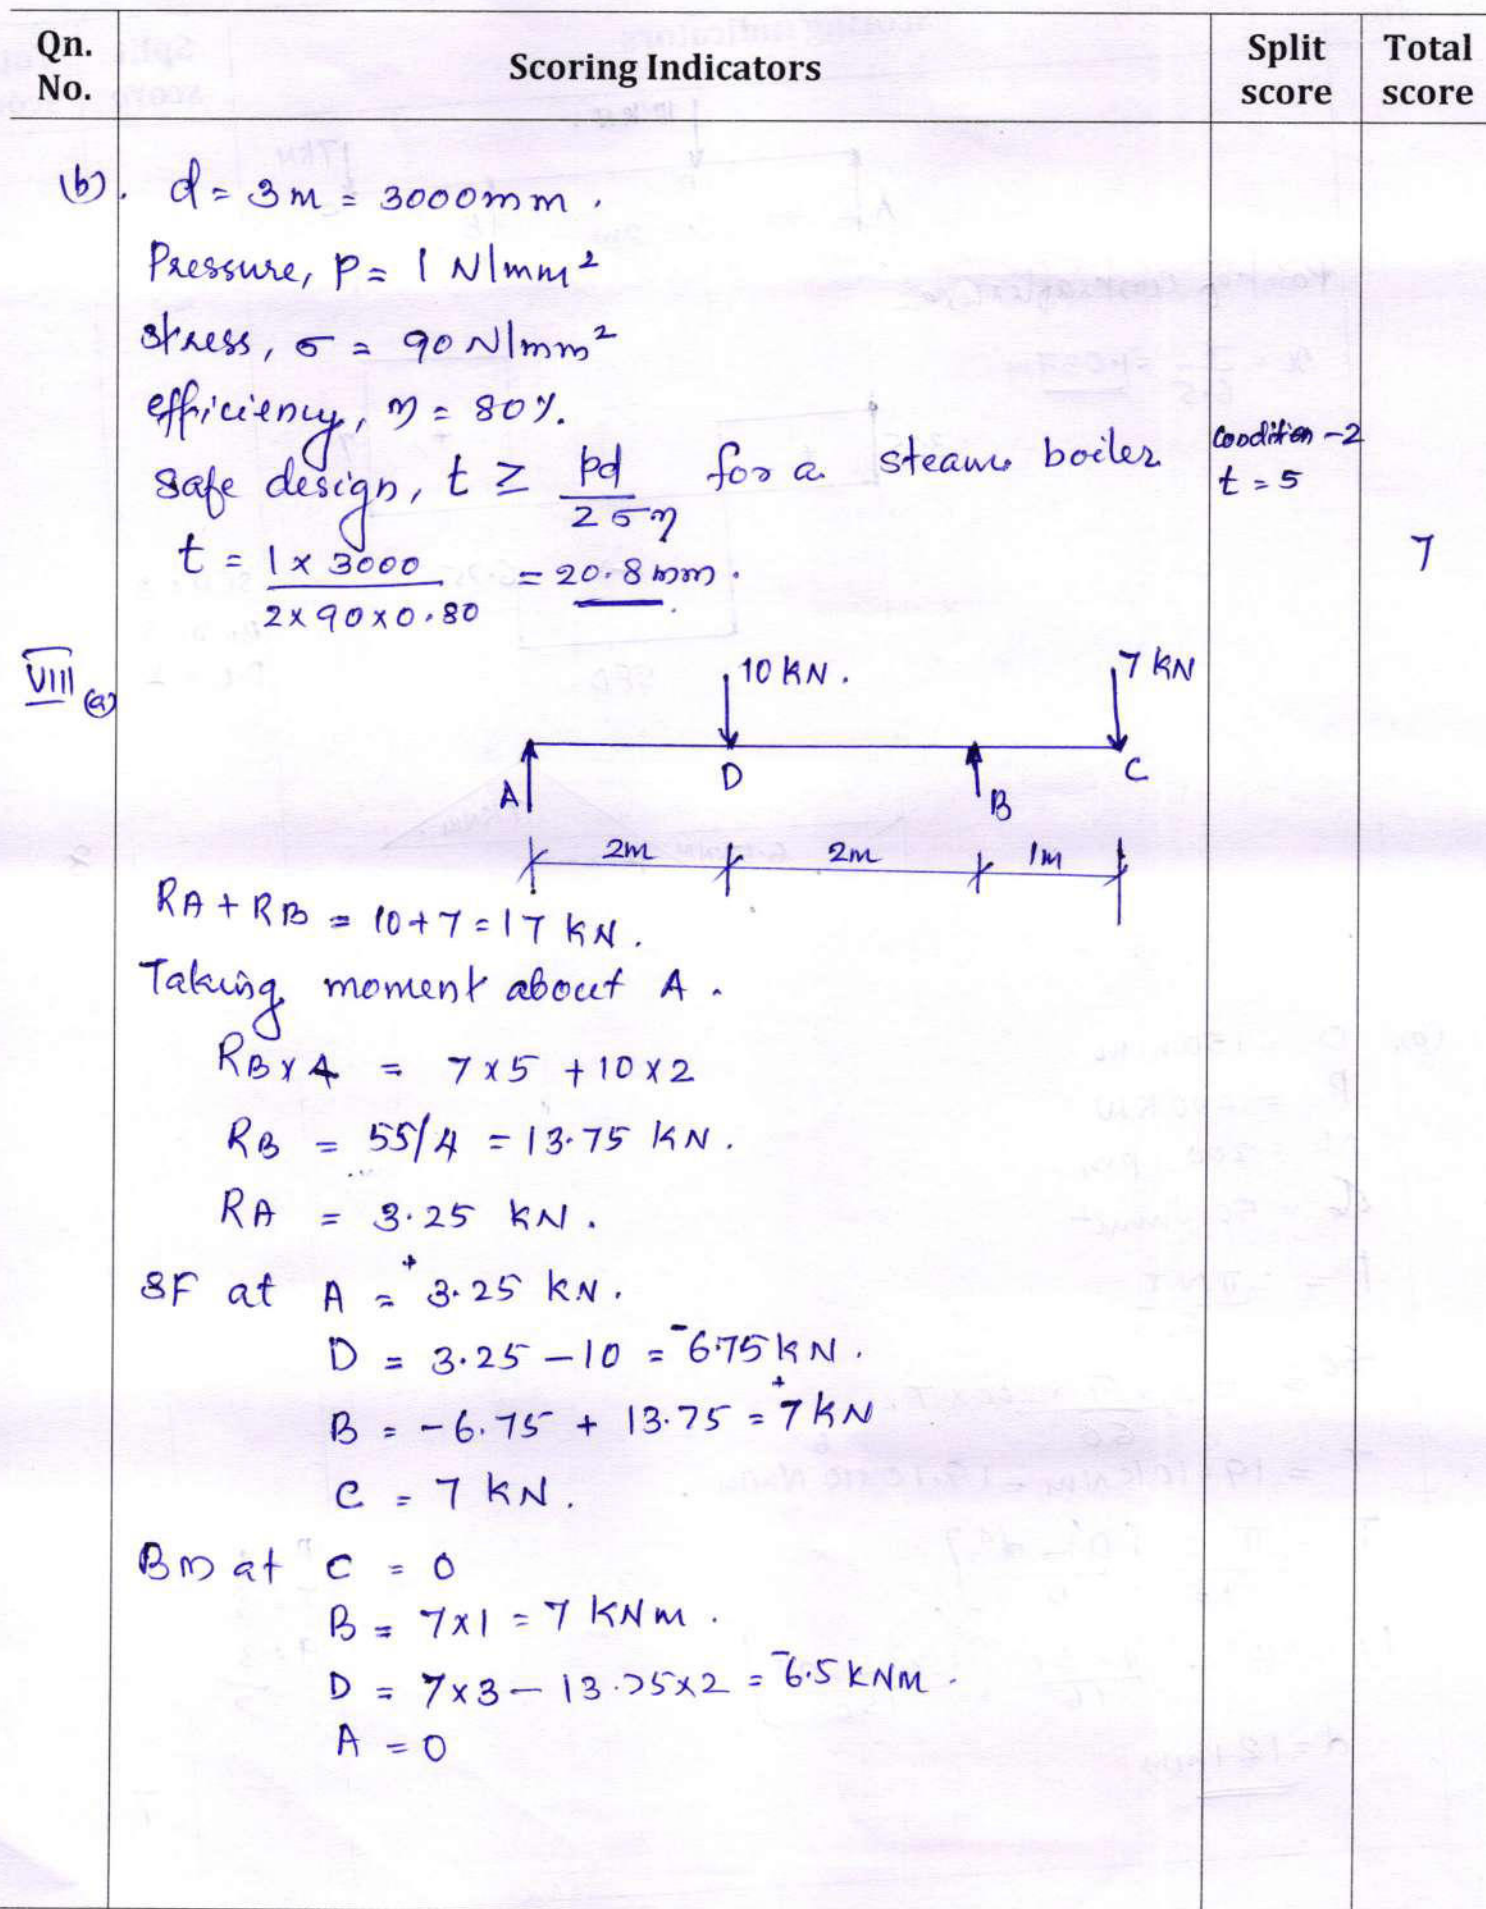 Qn. No.
Scoring Indicators
Split score
Total score
(b). d = 3m = 3000mm.
Pressure, P = 1 N/mm²
stress, σ = 90 N/mm²
efficiency, η = 80%.
safe design, t ≥ pd/2ση for a steam boiler
Condition - 2
t = 5
t = 1 x 3000 / 2x90x0.80 = 20.8 mm.
7
VIII (a)
10 KN.
7 KN
A
D
B
C
2m
2m
1m
RA + RB = 10+7 = 17 KN.
Taking moment about A.
RB x 4 = 7x5 + 10x2
RB = 55/4 = 13.75 KN.
RA = 3.25 KN.
SF at A = +3.25 KN.
D = 3.25 - 10 = -6.75 KN.
B = -6.75 + 13.75 = +7 KN
C = 7 KN.
BM at C = 0
B = 7x1 = 7 KNm.
D = 7x3 - 13.75x2 = -6.5 KNM.
A = 0